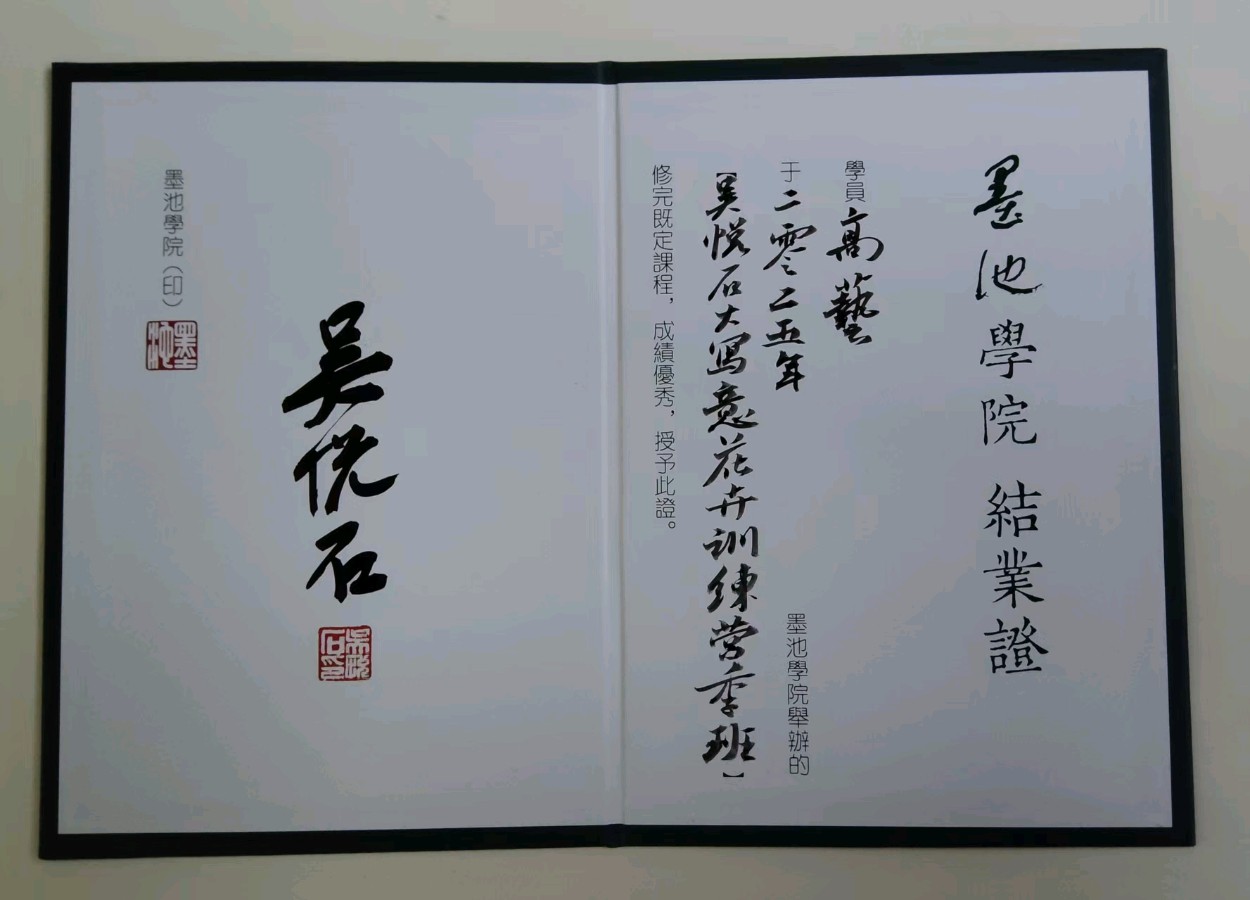 墨池學院 結業證
學員 高藝
于二零二五年 墨池學院舉辦的
【吳悅石大寫意花卉訓練營季班】
修完既定課程，成績優秀，授予此證。
吳悅石
吳悅石印
墨池學院（印）
墨池